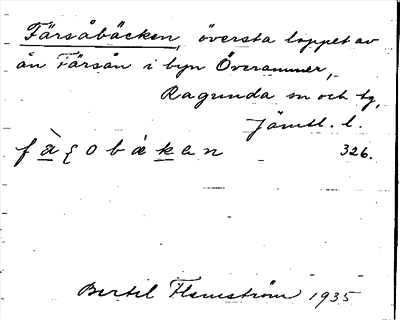 Färsåbäcken, översta loppet av
ån Färsån i byn Överammer,
Ragunda sn och tg,
Jämtl. l.
326.
Bertil Flemström 1935